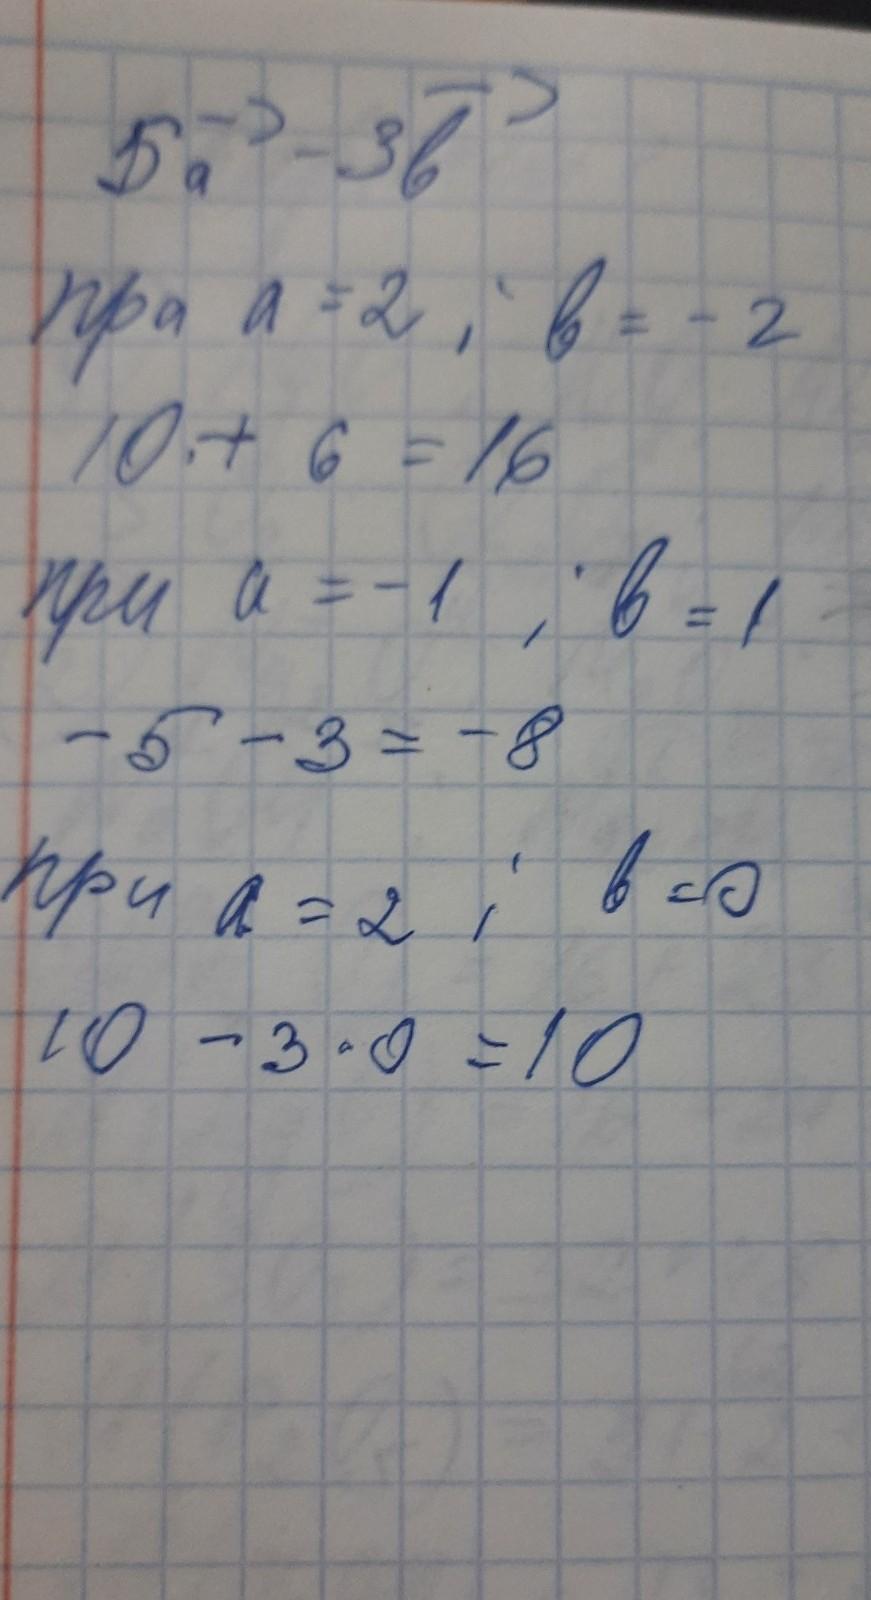 5a⃗ - 3b⃗
при a = 2 ; b = - 2
10 + 6 = 16
при a = - 1 ; b = 1
- 5 - 3 = - 8
при a = 2 ; b = 0
10 - 3 · 0 = 10